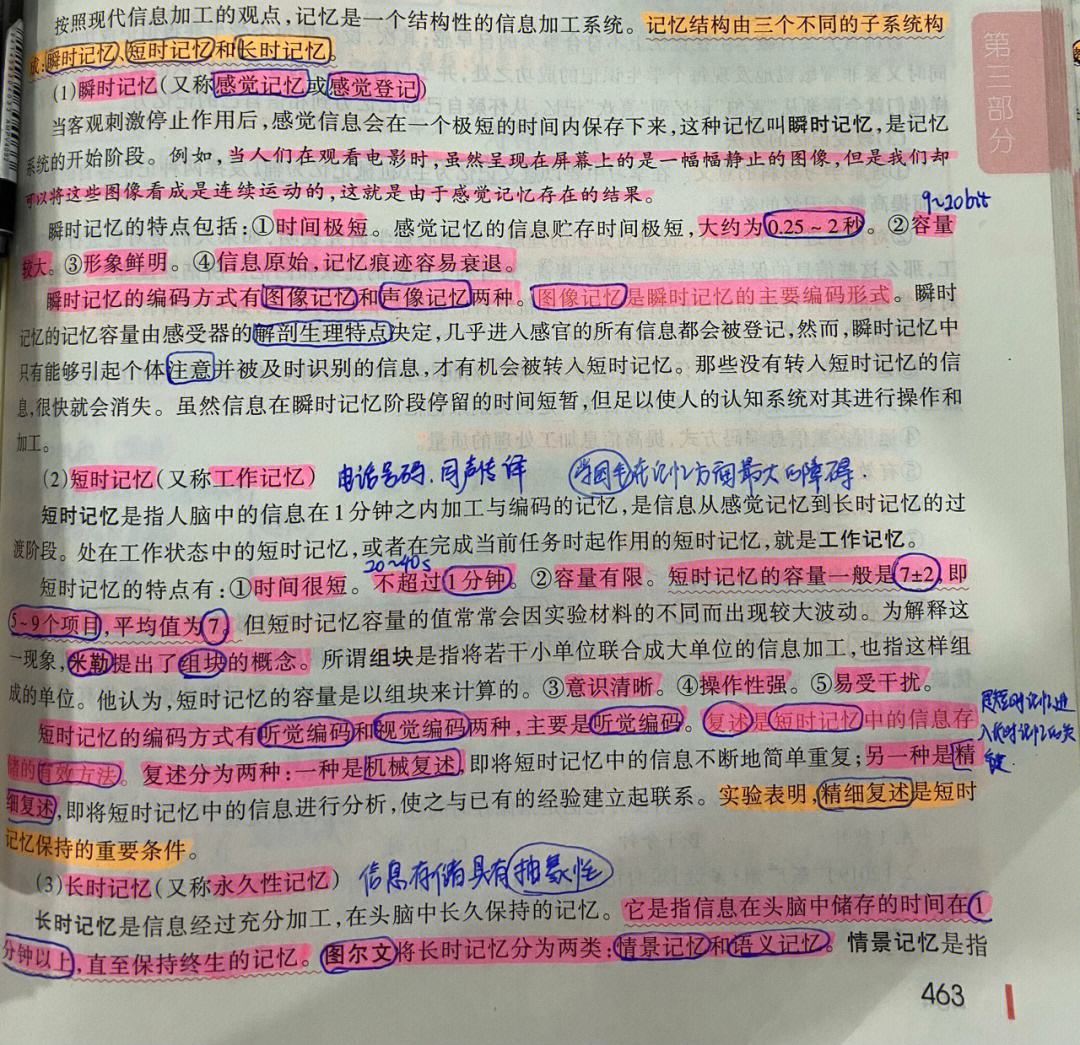 第三部分
按照现代信息加工的观点，记忆是一个结构性的信息加工系统。记忆结构由三个不同的子系统构
成：瞬时记忆、短时记忆和长时记忆。
(1)瞬时记忆(又称感觉记忆或感觉登记)
当客观刺激停止作用后，感觉信息会在一个极短的时间内保存下来，这种记忆叫瞬时记忆，是记忆
系统的开始阶段。例如，当人们在观看电影时，虽然呈现在屏幕上的是一幅幅静止的图像，但是我们却
可以将这些图像看成是连续运动的，这就是由于感觉记忆存在的结果。
9~20bit
瞬时记忆的特点包括：①时间极短。感觉记忆的信息贮存时间极短，大约为0.25~2秒。②容量
较大。③形象鲜明。④信息原始，记忆痕迹容易衰退。
瞬时记忆的编码方式有图像记忆和声像记忆两种。图像记忆是瞬时记忆的主要编码形式。瞬时
记忆的记忆容量由感受器的解剖生理特点决定，几乎进入感官的所有信息都会被登记，然而，瞬时记忆中
只有能够引起个体注意并被及时识别的信息，才有机会被转入短时记忆。那些没有转入短时记忆的信
息，很快就会消失。虽然信息在瞬时记忆阶段停留的时间短暂，但足以使人的认知系统对其进行操作和
加工。
(2)短时记忆(又称工作记忆) 电话号码、同声传译 学困生在记忆方面最大的障碍.
短时记忆是指人脑中的信息在1分钟之内加工与编码的记忆，是信息从感觉记忆到长时记忆的过
渡阶段。处在工作状态中的短时记忆，或者在完成当前任务时起作用的短时记忆，就是工作记忆。
20~40s
短时记忆的特点有：①时间很短。不超过1分钟。②容量有限。短时记忆的容量一般是7±2，即
5~9个项目，平均值为7。但短时记忆容量的值常常会因实验材料的不同而出现较大波动。为解释这
一现象，米勒提出了组块的概念。所谓组块是指将若干小单位联合成大单位的信息加工，也指这样组
成的单位。他认为，短时记忆的容量是以组块来计算的。③意识清晰。④操作性强。⑤易受干扰。
短时记忆的编码方式有听觉编码和视觉编码两种，主要是听觉编码。复述是短时记忆中的信息存
储的有效方法。复述分为两种：一种是机械复述，即将短时记忆中的信息不断地简单重复；另一种是精
细复述，即将短时记忆中的信息进行分析，使之与已有的经验建立起联系。实验表明，精细复述是短时
记忆保持的重要条件。
是短时记忆进
入长时记忆的关
键.
(3)长时记忆(又称永久性记忆) 信息存储具有抽象性
长时记忆是信息经过充分加工，在头脑中长久保持的记忆。它是指信息在头脑中储存的时间在1
分钟以上，直至保持终生的记忆。图尔文将长时记忆分为两类：情景记忆和语义记忆。情景记忆是指
463